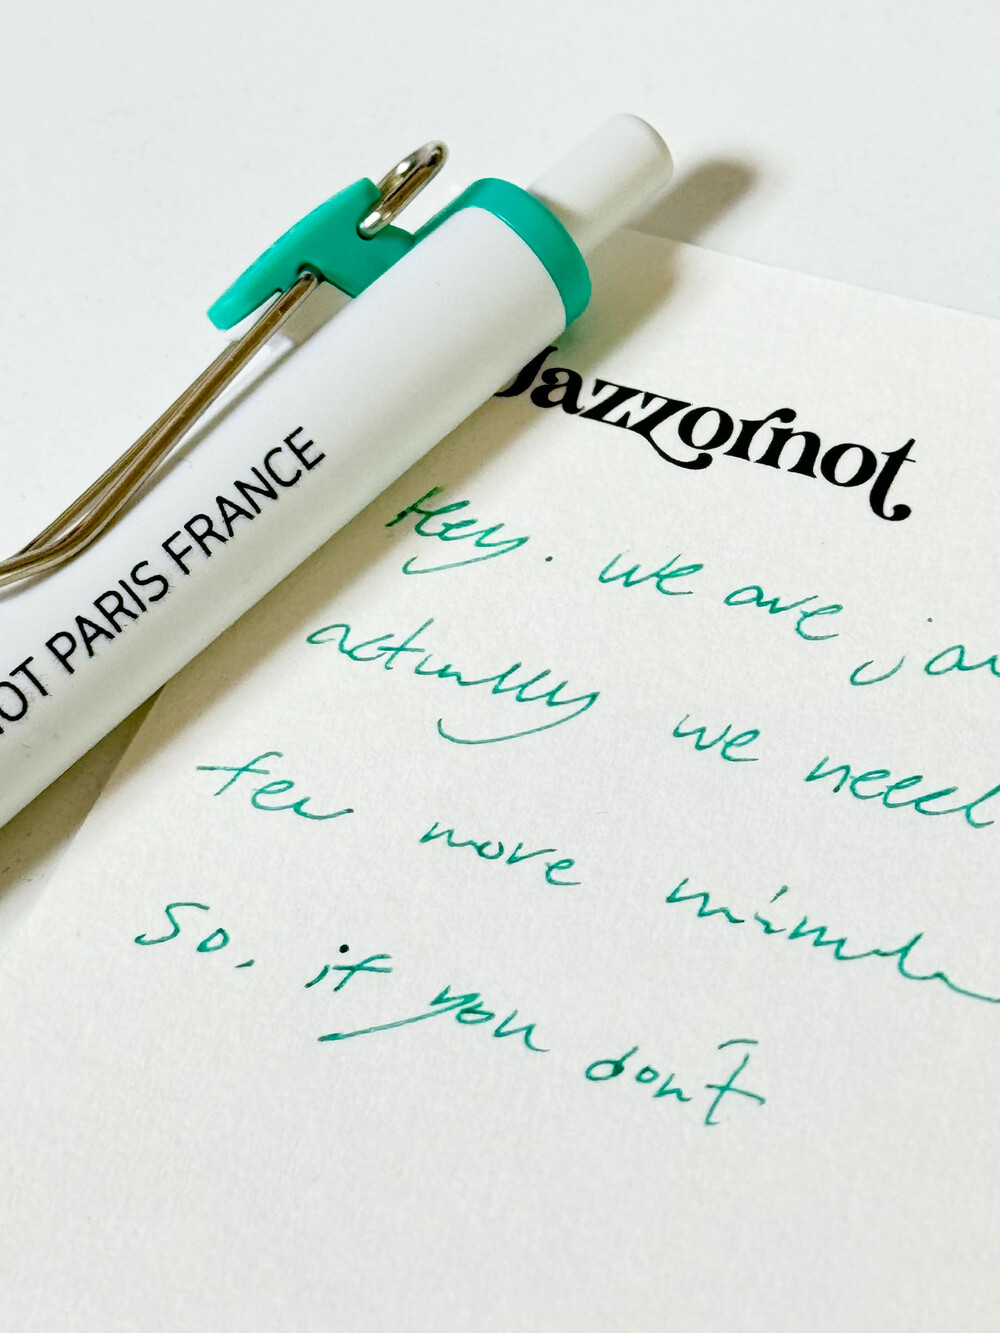 OT PARIS FRANCE
Jazzornot
Hey. we are
actually we need
few more
So, if you don't